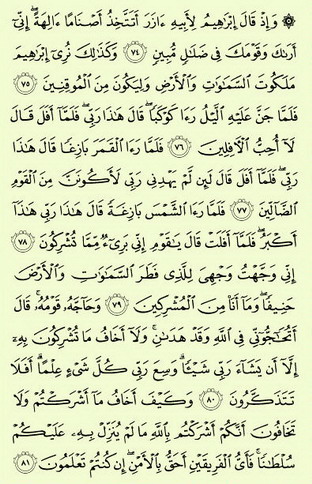 ۞ وَإِذْ قَالَ إِبْرَٰهِيمُ لِأَبِيهِ ءَازَرَ أَتَتَّخِذُ أَصْنَامًا ءَالِهَةً ۖ إِنِّىٓ
أَرَىٰكَ وَقَوْمَكَ فِى ضَلَٰلٍ مُّبِينٍ ٧٤ وَكَذَٰلِكَ نُرِىٓ إِبْرَٰهِيمَ
مَلَكُوتَ ٱلسَّمَٰوَٰتِ وَٱلْأَرْضِ وَلِيَكُونَ مِنَ ٱلْمُوقِنِينَ ٧٥
فَلَمَّا جَنَّ عَلَيْهِ ٱلَّيْلُ رَءَا كَوْكَبًا ۖ قَالَ هَٰذَا رَبِّى ۖ فَلَمَّآ أَفَلَ قَالَ
لَآ أُحِبُّ ٱلْءَافِلِينَ ٧٦ فَلَمَّا رَءَا ٱلْقَمَرَ بَازِغًا قَالَ هَٰذَا
رَبِّى ۖ فَلَمَّآ أَفَلَ قَالَ لَئِن لَّمْ يَهْدِنِى رَبِّى لَأَكُونَنَّ مِنَ ٱلْقَوْمِ
ٱلضَّآلِّينَ ٧٧ فَلَمَّا رَءَا ٱلشَّمْسَ بَازِغَةً قَالَ هَٰذَا رَبِّى هَٰذَآ
أَكْبَرُ ۖ فَلَمَّآ أَفَلَتْ قَالَ يَٰقَوْمِ إِنِّى بَرِىٓءٌ مِّمَّا تُشْرِكُونَ ٧٨
إِنِّى وَجَّهْتُ وَجْهِىَ لِلَّذِى فَطَرَ ٱلسَّمَٰوَٰتِ وَٱلْأَرْضَ
حَنِيفًا ۖ وَمَآ أَنَا۠ مِنَ ٱلْمُشْرِكِينَ ٧٩ وَحَآجَّهُۥ قَوْمُهُۥ ۚ قَالَ
أَتُحَٰٓجُّوٓنِّى فِى ٱللَّهِ وَقَدْ هَدَىٰنِ ۚ وَلَآ أَخَافُ مَا تُشْرِكُونَ بِهِۦٓ
إِلَّآ أَن يَشَآءَ رَبِّى شَيْـًٔا ۗ وَسِعَ رَبِّى كُلَّ شَىْءٍ عِلْمًا ۗ أَفَلَا
تَتَذَكَّرُونَ ٨٠ وَكَيْفَ أَخَافُ مَآ أَشْرَكْتُمْ وَلَا
تَخَافُونَ أَنَّكُمْ أَشْرَكْتُم بِٱللَّهِ مَا لَمْ يُنَزِّلْ بِهِۦ عَلَيْكُمْ
سُلْطَٰنًا ۚ فَأَىُّ ٱلْفَرِيقَيْنِ أَحَقُّ بِٱلْأَمْنِ ۖ إِن كُنتُمْ تَعْلَمُونَ ٨١